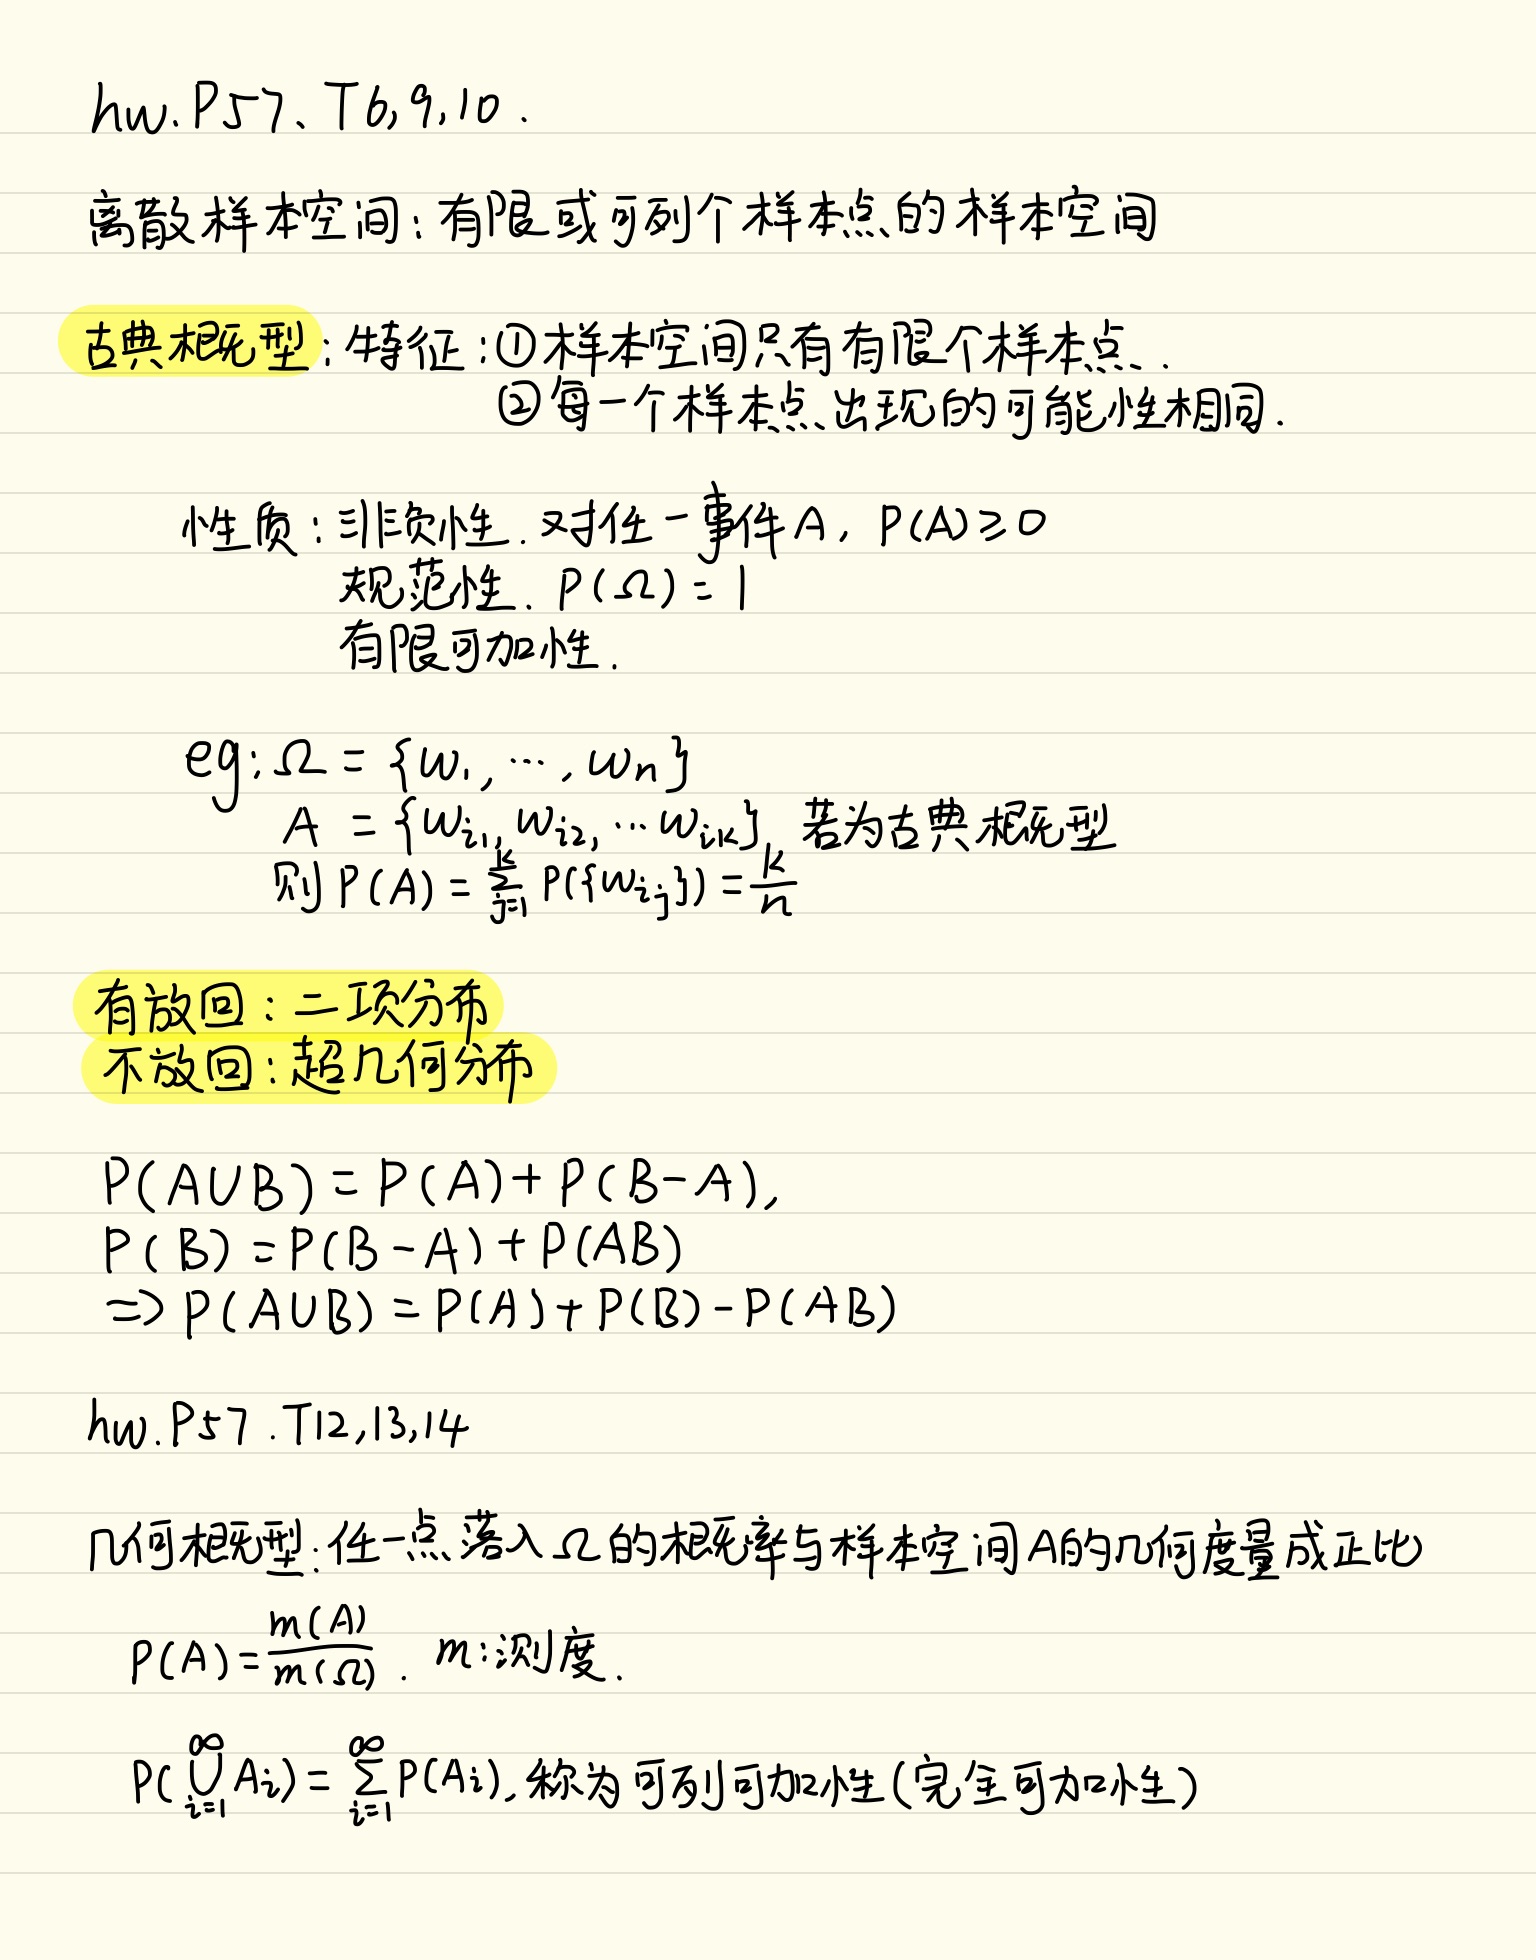 hw. P57、T6,9,10.
离散样本空间:有限或可列个样本点的样本空间
古典概型:特征:①样本空间只有有限个样本点.
②每一个样本点出现的可能性相同.
性质:非负性.对任一事件A, P(A)≥0
规范性. P(Ω)=1
有限可加性.
eg: Ω = {w₁, ⋯, wₙ}
A = {w_{i1}, w_{i2}, ⋯ w_{ik}}, 若为古典概型
则 P(A) = \sum_{j=1}^{k} P({w_{ij}}) = \frac{k}{n}
有放回:二项分布
不放回:超几何分布
P(A∪B) = P(A) + P(B-A),
P(B) = P(B-A) + P(AB)
=> P(A∪B) = P(A) + P(B) - P(AB)
hw. P57. T12,13,14
几何概型:任一点落入Ω的概率与样本空间A的几何度量成正比
P(A) = \frac{m(A)}{m(Ω)}. m:测度.
P(\bigcup_{i=1}^{∞} A_i) = \sum_{i=1}^{∞} P(A_i), 称为可列可加性(完全可加性)